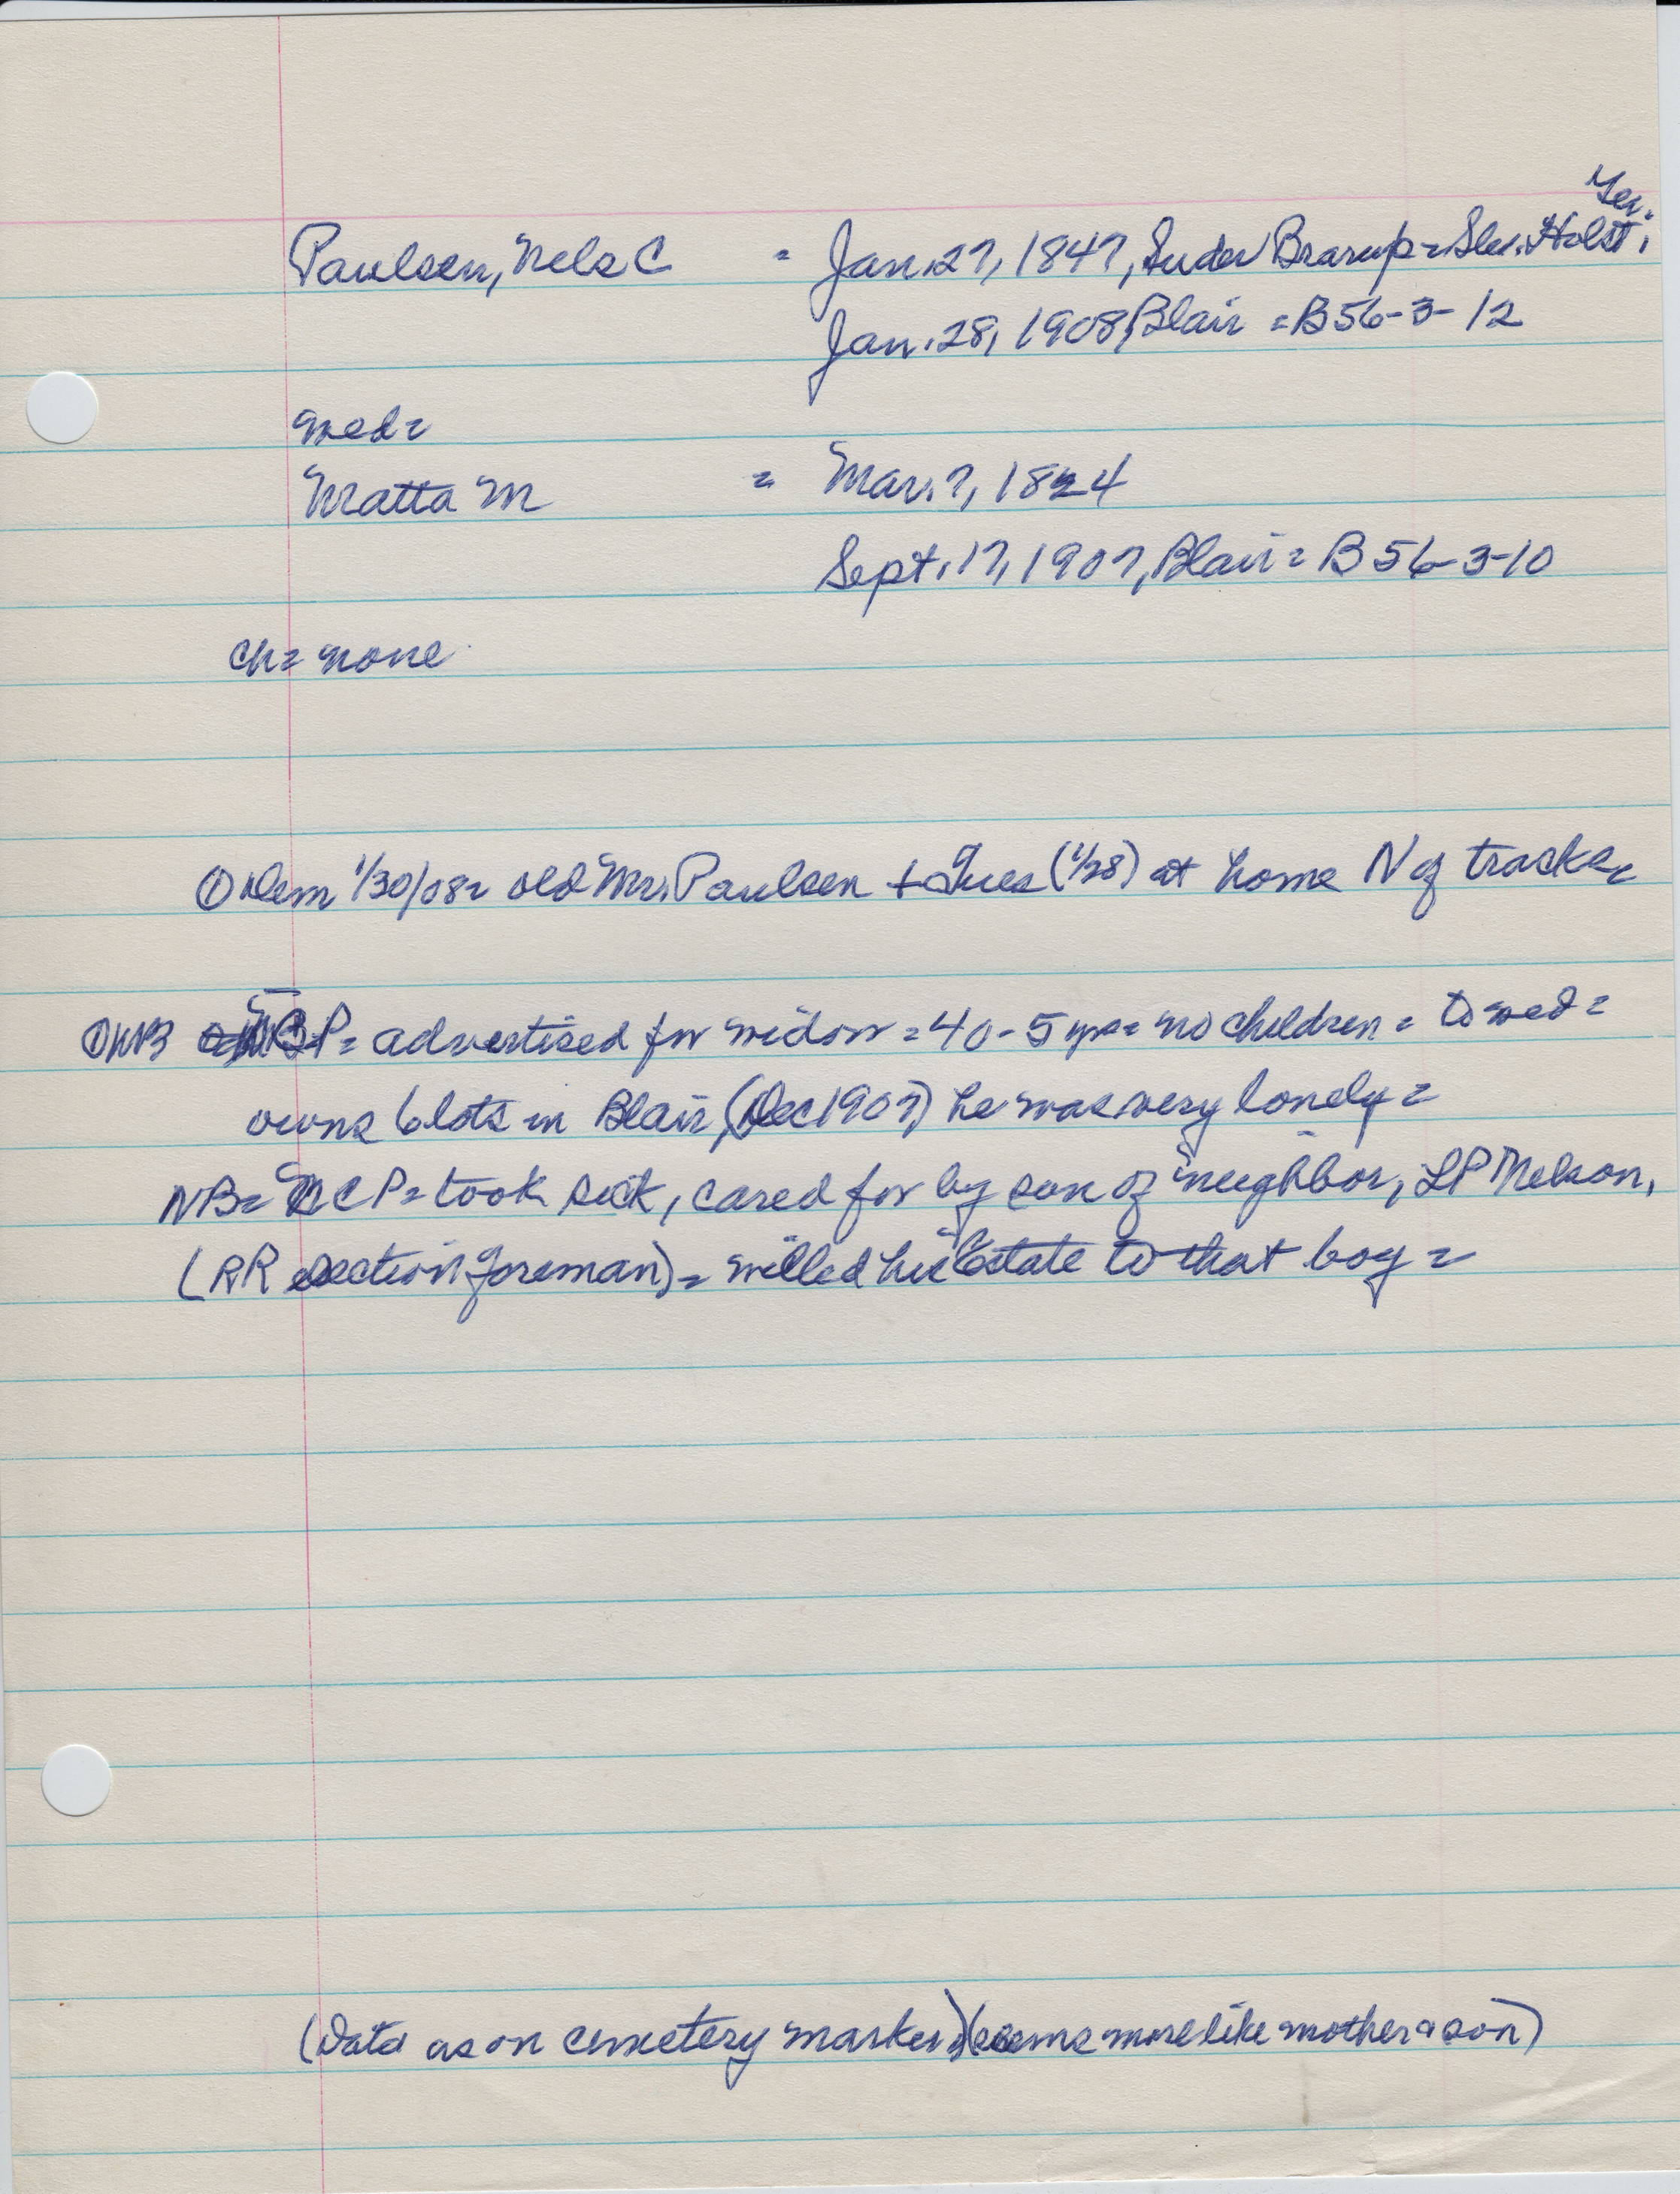 Ger.
Paulsen, Nels C = Jan. 27, 1847, Suder Brarup = Sles. Holst,
Jan. 28, 1908, Blair = B56-3-12
wed =
Matta M = Mar. 7, 1824
Sept. 17, 1907, Blair = B56-3-10
ch = none
① Dem 1/30/08 = old Mr. Paulsen + Tues (1/28) at home N of tracks =
P = advertised for widow = 40-5 yrs = no children = to wed =
owns 6 lots in Blair, (Dec 1907) he was very lonely =
NB = NCP = took sick, cared for by son of neighbor, LP Nelson,
(RR section foreman) = willed his estate to that boy =
(Data as on cemetery marker) (seems more like mother & son)